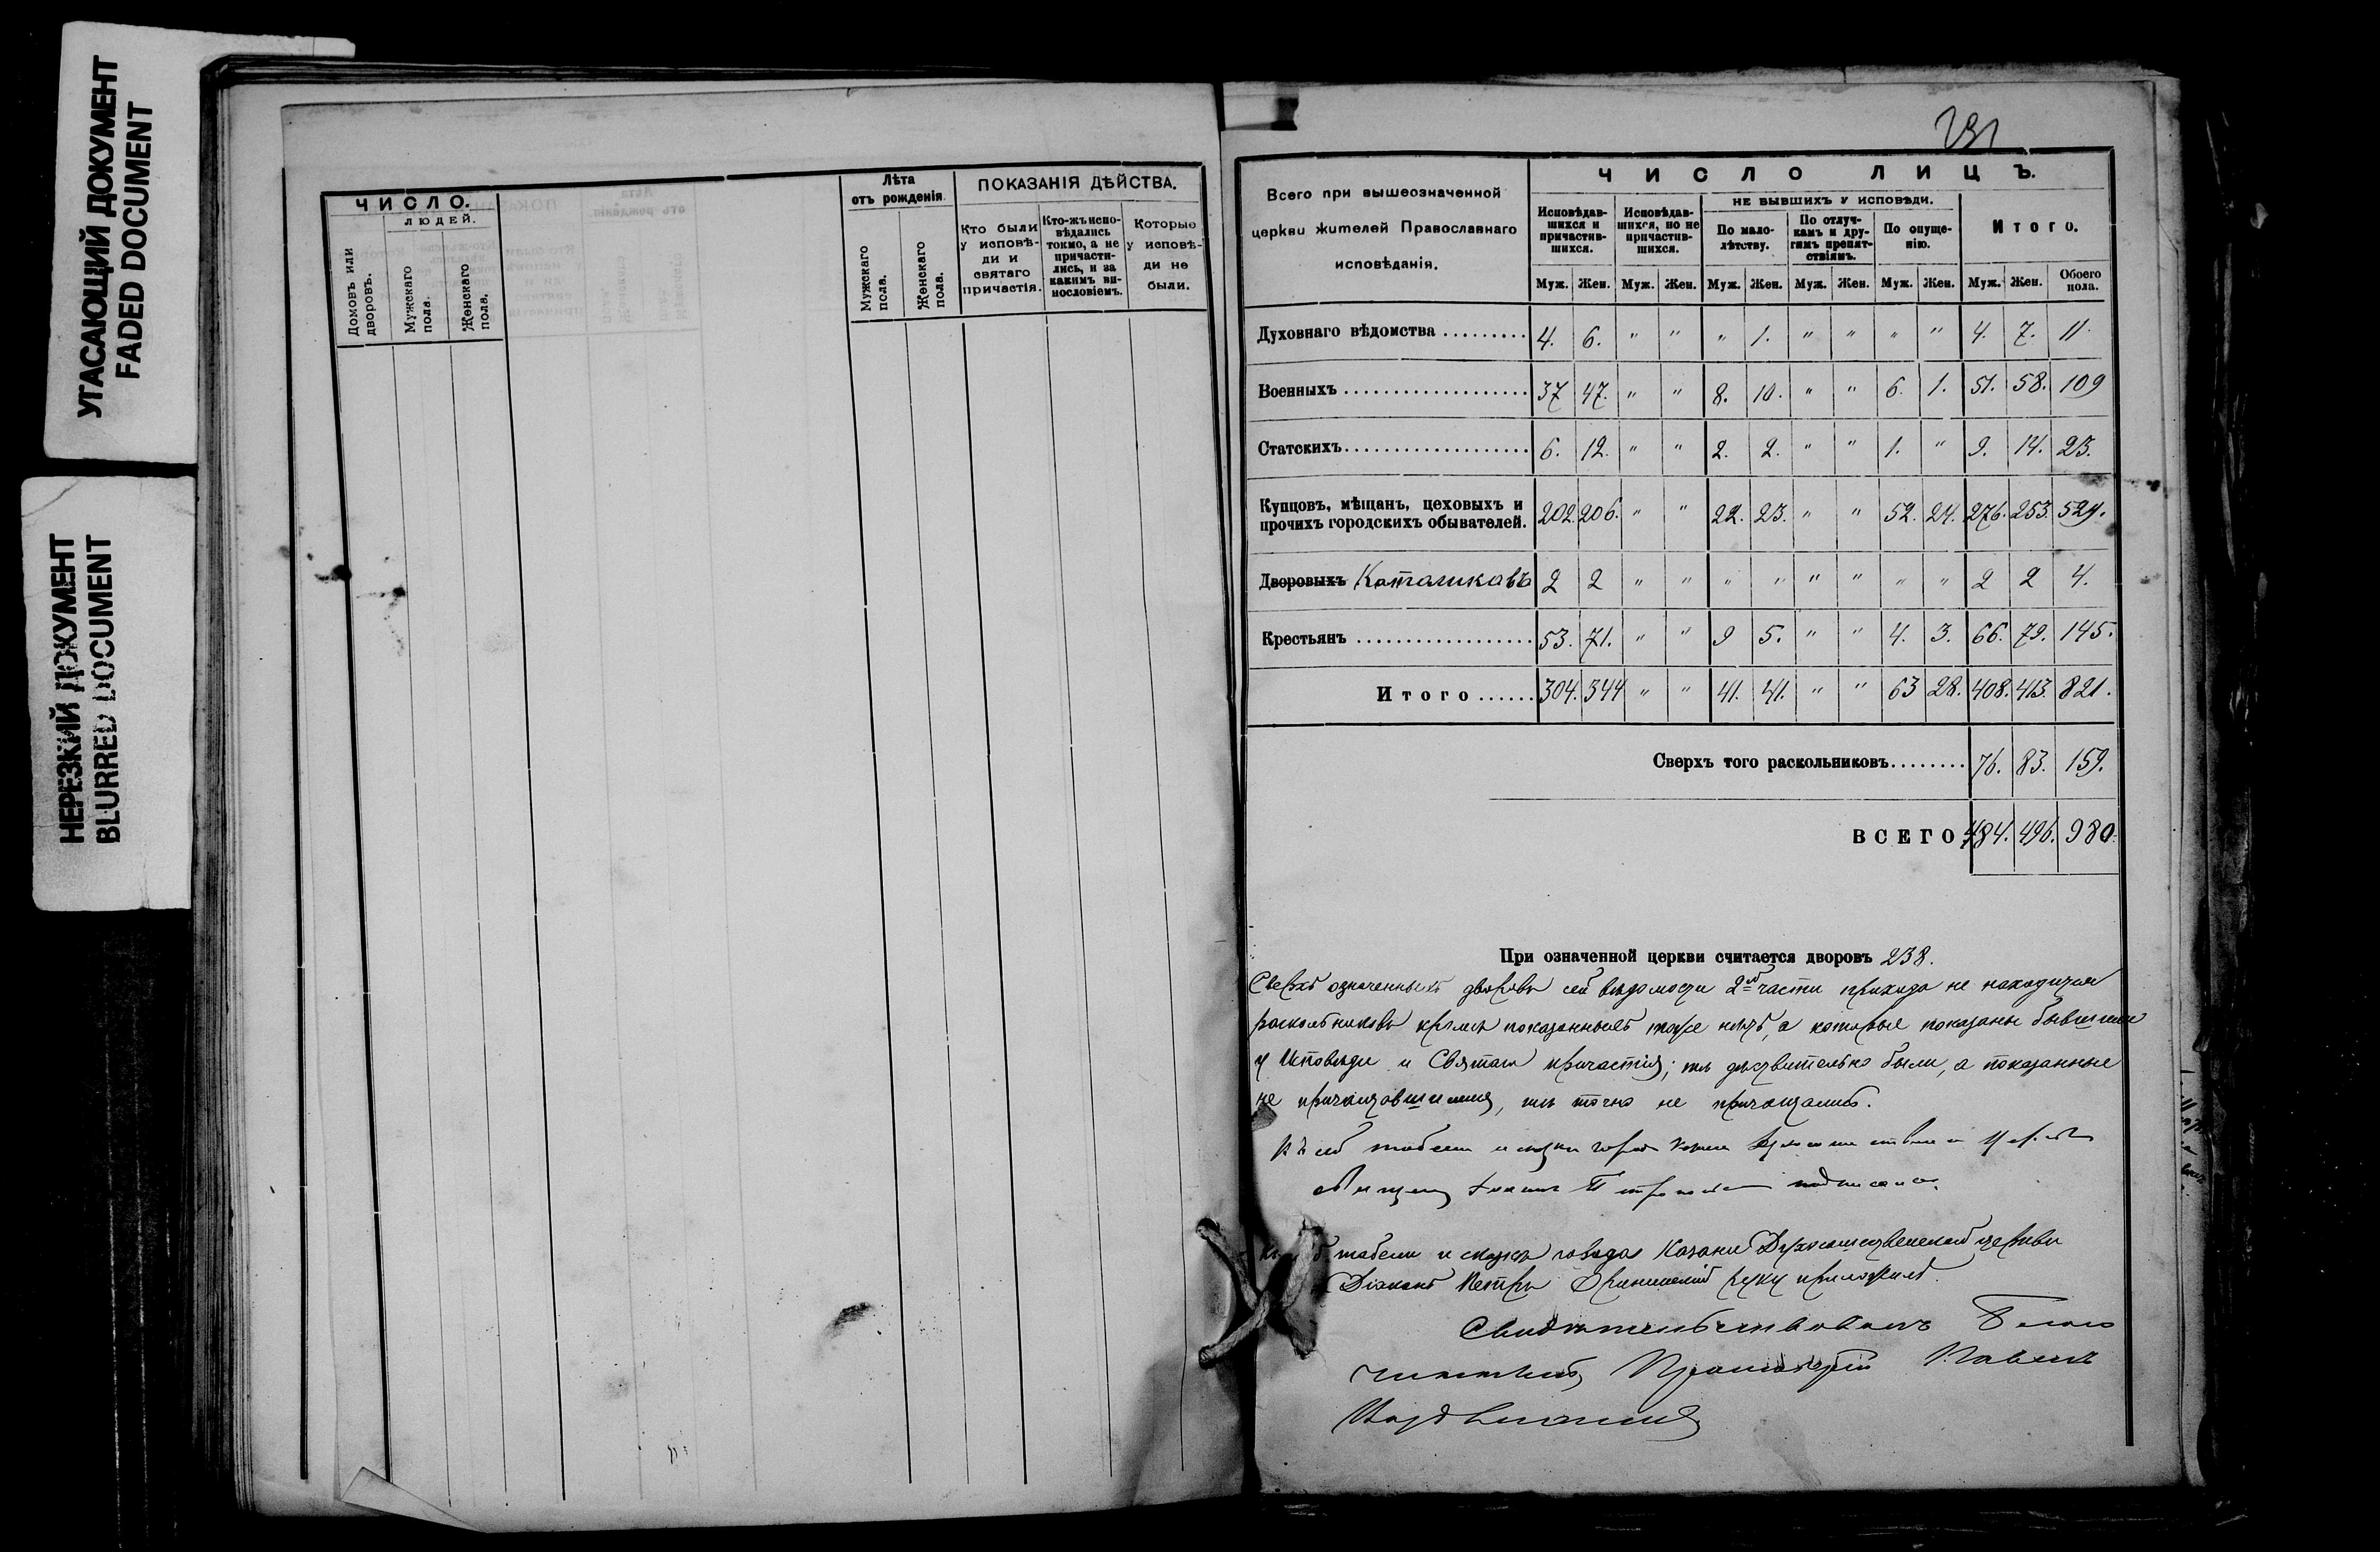 УГАСАЮЩИЙ ДОКУМЕНТ
FADED DOCUMENT
НЕРЕЗКИЙ ДОКУМЕНТ
BLURRED DOCUMENT
ЧИСЛО.
ЛЮДЕЙ.
Домовъ или дворовъ.
Мужскаго пола.
Женскаго пола.
Лѣта
отъ рожденія.
Мужскаго пола.
Женскаго пола.
ПОКАЗАНІЯ ДѢЙСТВА.
Кто были
у исповѣ-
ди и
святаго
причастія.
Кто-жъ испо-
вѣдались
токмо, а не
причасти-
лись, и за
какимъ ви-
нословіемъ.
Которые
у исповѣ-
ди не
были.
231
Всего при вышеозначенной
церкви жителей Православнаго
исповѣданія.
ЧИСЛО ЛИЦЪ.
Исповѣдав-
шихся и
причастив-
шихся.
Исповѣдав-
шихся, но не
причастив-
шихся.
НЕ БЫВШИХЪ У ИСПОВѢДИ.
По мало-
лѣтству.
По отлуч-
камъ и дру-
гимъ препят-
ствіямъ.
По опуще-
нію.
Итого.
Муж. Жен. Муж. Жен. Муж. Жен. Муж. Жен. Муж. Жен. Муж. Жен. Обоего пола.
Духовнаго вѣдомства 4. 6. " " " 1. " " " " 4. 7. 11.
Военныхъ 37 47. " " 8. 10. " " 6. 1. 51. 58. 109
Статскихъ 6. 12. " " 2. 2. " " 1. " 9. 14. 23.
Купцовъ, мѣщанъ, цеховыхъ и
прочихъ городскихъ обывателей. 202. 206. " " 22. 23. " " 52. 24. 276. 253. 529.
Дворовыхъ Католиковъ 2 2 " " " " " " " " 2 2 4.
Крестьянъ 53. 71. " " 9 5. " " 4. 3. 66. 79. 145.
Итого 304. 344 " " 41. 41. " " 63 28. 408. 413. 821.
Сверхъ того раскольниковъ 76. 83. 159.
ВСЕГО 484. 496. 980.
При означенной церкви считается дворовъ 238.
Сверхъ означенныхъ дворовъ сей вѣдомости 2ой части прихода не находится
раскольниковъ кромѣ показанныхъ тоже нѣтъ, а которые показаны бывшими
у Исповѣди и Святаго причастія; тѣ дѣйствительно были, а показанные
не причащавшимися, тѣ точно не причащались.
Къ сей табели
подписался.
табели города Казани Духосошественской церкви
Діаконъ Петръ руку приложилъ.
Свидѣтельствовалъ Благо
чинный Протоіерей Павелъ